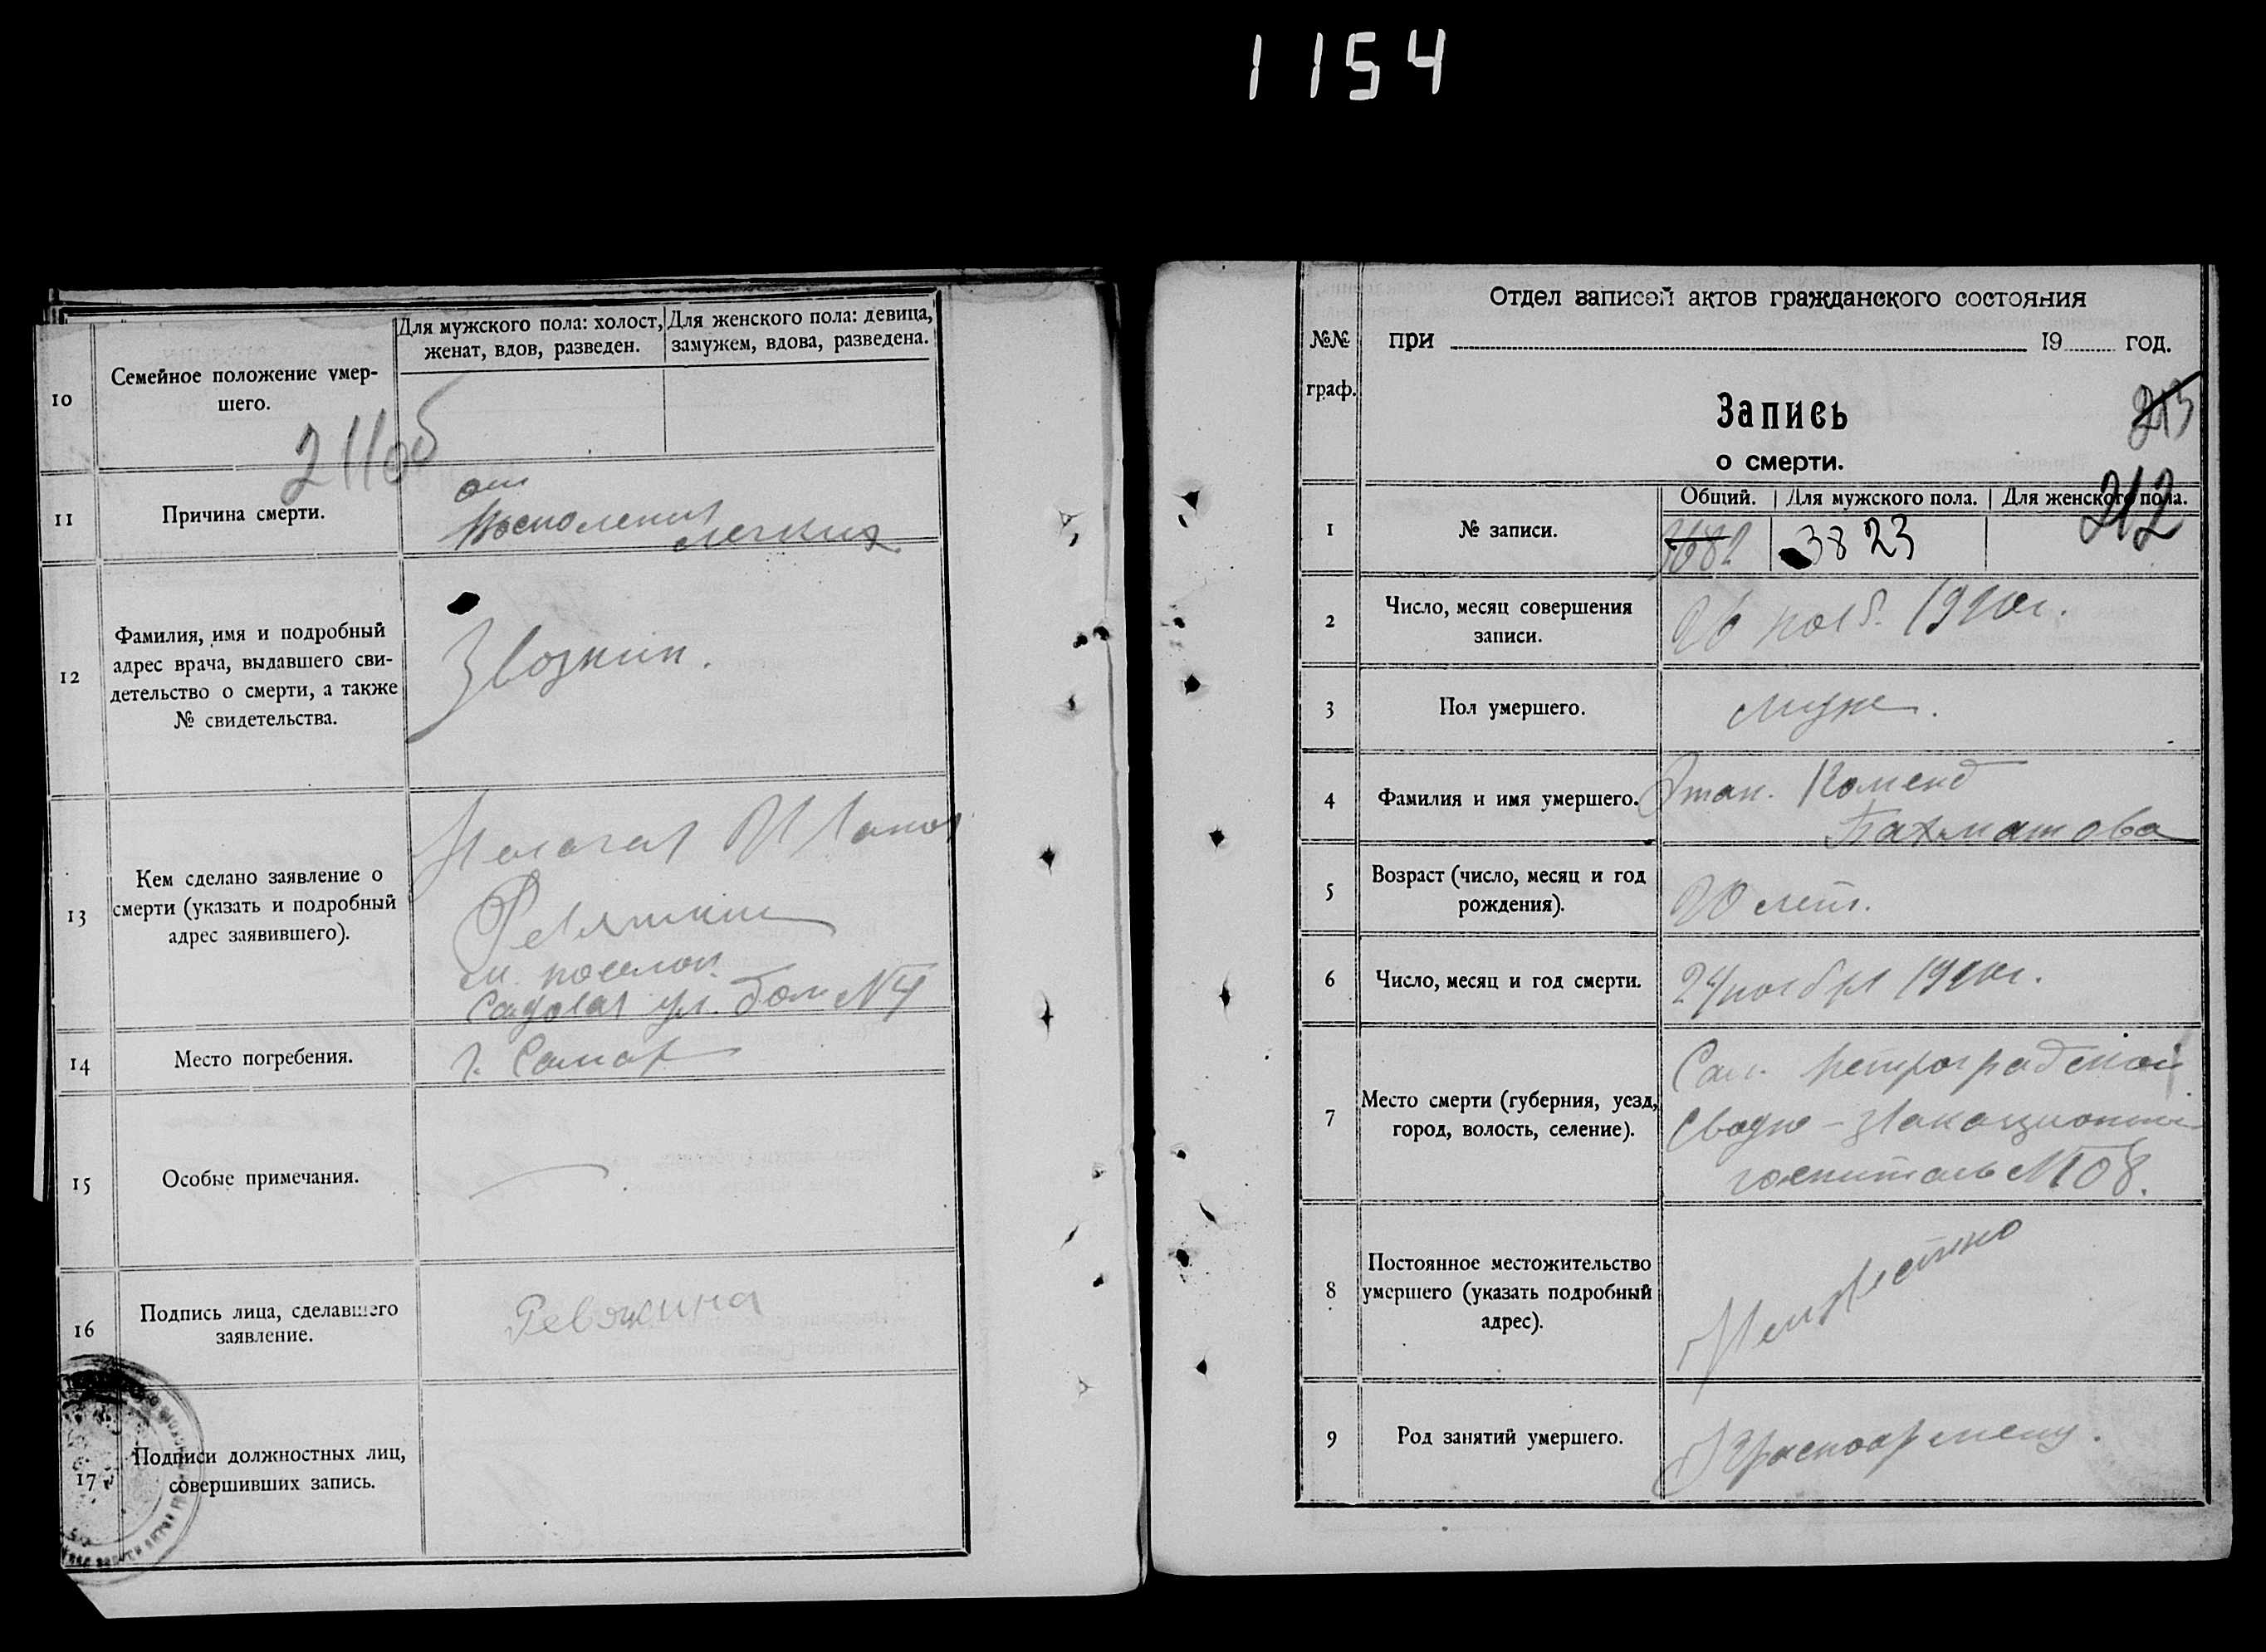 1154
10
Семейное положение умер-
шего.
Для мужского пола: холост,
женат, вдов, разведен.
Для женского пола: девица,
замужем, вдова, разведена.
211об
11
Причина смерти.
от
Воспаления
легких
12
Фамилия, имя и подробный
адрес врача, выдавшего сви-
детельство о смерти, а также
№ свидетельства.
13
Кем сделано заявление о
смерти (указать и подробный
адрес заявившего).
Ревякин
Садовая ул. дом №4
14
Место погребения.
г. Самар
15
Особые примечания.
16
Подпись лица, сделавшего
заявление.
Ревякина
17
Подписи должностных лиц,
совершивших запись.
№№
граф.
Отдел записей актов гражданского состояния
при 19 год.
Запись
о смерти.
213
212
1
№ записи.
Общий.
Для мужского пола.
Для женского пола.
3823
2
Число, месяц совершения
записи.
26 нояб. 1920г.
3
Пол умершего.
муж.
4
Фамилия и имя умершего.
Этап. Коменд
Бахматова
5
Возраст (число, месяц и год
рождения).
20 лет.
6
Число, месяц и год смерти.
24 ноября 1920г.
7
Место смерти (губерния, уезд,
город, волость, селение).
Сам. Петроградской
Сводно-Эвакационный
госпиталь №108.
8
Постоянное местожительство
умершего (указать подробный
адрес).
Неизвестно
9
Род занятий умершего.
Красноармеец.